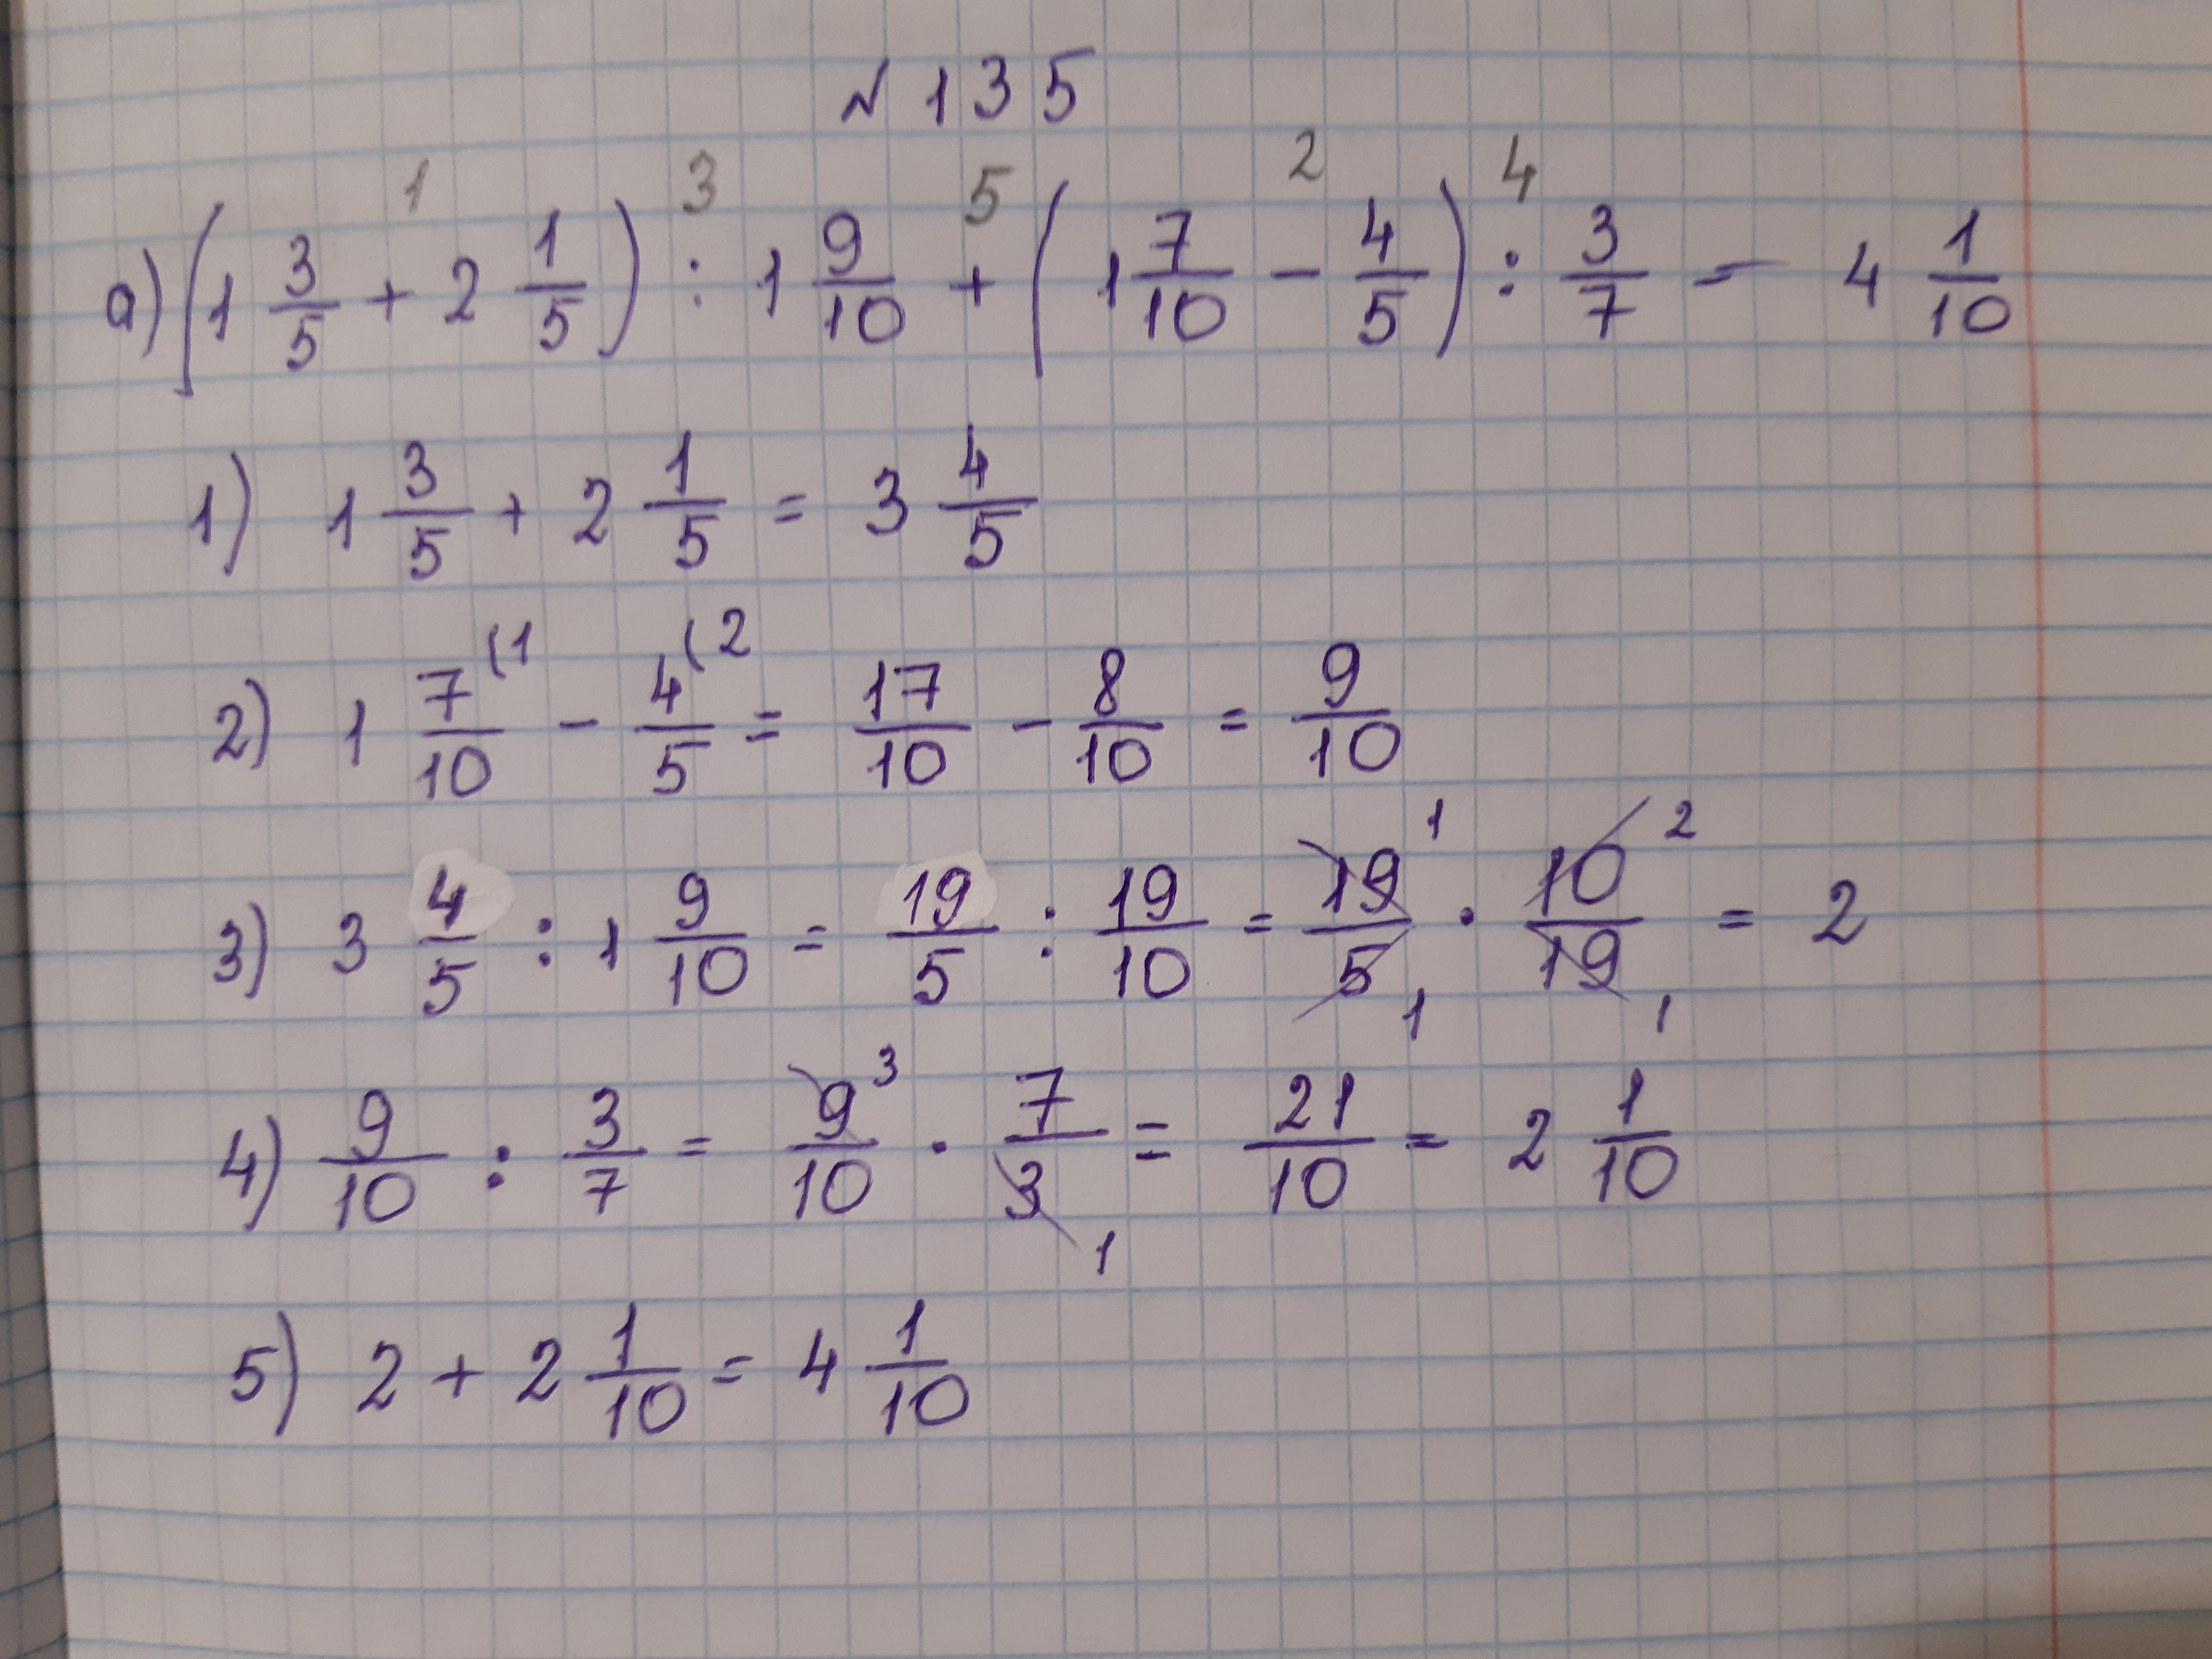 № 135
1 3 5 2 4
а) (1 3/5 + 2 1/5) : 1 9/10 + (1 7/10 - 4/5) : 3/7 = 4 1/10
1) 1 3/5 + 2 1/5 = 3 4/5
2) 1 7/10 (1 - 4/5 (2 = 17/10 - 8/10 = 9/10
3) 3 4/5 : 1 9/10 = 19/5 : 19/10 = 19 1/5 1 · 10 2/19 1 = 2
4) 9/10 : 3/7 = 9 3/10 · 7/3 1 = 21/10 = 2 1/10
5) 2 + 2 1/10 = 4 1/10